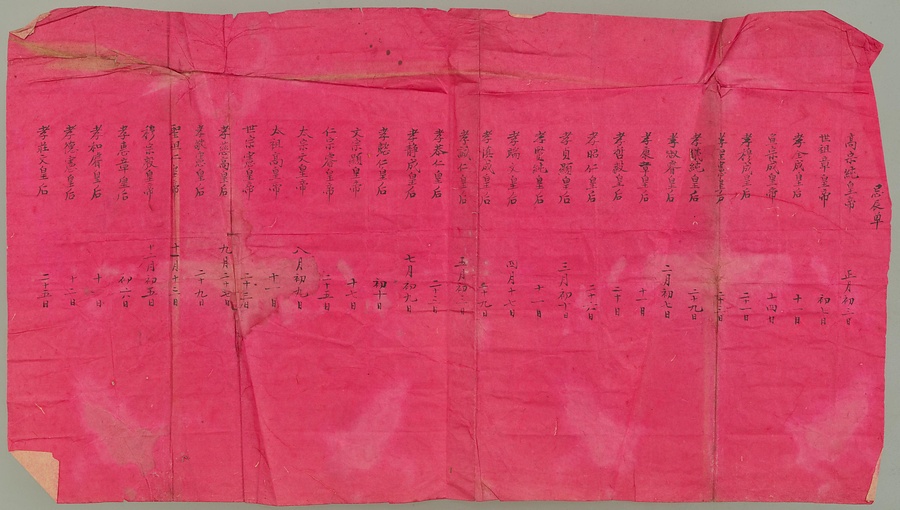 忌辰單
高宗純皇帝 正月初三日
世祖章皇帝 初七日
孝全成皇后 十一日
宣宗成皇帝 十四日
孝穆成皇后 二十一日
孝聖憲皇后 二十三日
孝儀純皇后 二十九日
孝淑睿皇后 二月初七日
孝康章皇后 十一日
孝哲毅皇后 二十日
孝昭仁皇后 二十六日
孝貞顯皇后 三月初十日
孝賢純皇后 十一日
孝端文皇后 四月十七日
孝慎成皇后 二十九日
孝誠仁皇后 五月初三日
孝恭仁皇后 二十三日
孝靜成皇后 七月初九日
孝懿仁皇后 初十日
文宗顯皇帝 十七日
仁宗睿皇帝 二十五日
太宗文皇帝 八月初九日
太祖高皇帝 十一日
世宗憲皇帝 二十三日
孝慈高皇后 九月二十七日
孝敬憲皇后 二十九日
聖祖仁皇帝 十一月十三日
穆宗毅皇帝 十二月初五日
孝惠章皇后 初六日
孝和睿皇后 十一日
孝 皇后 十二日
孝莊文皇后 二十五日